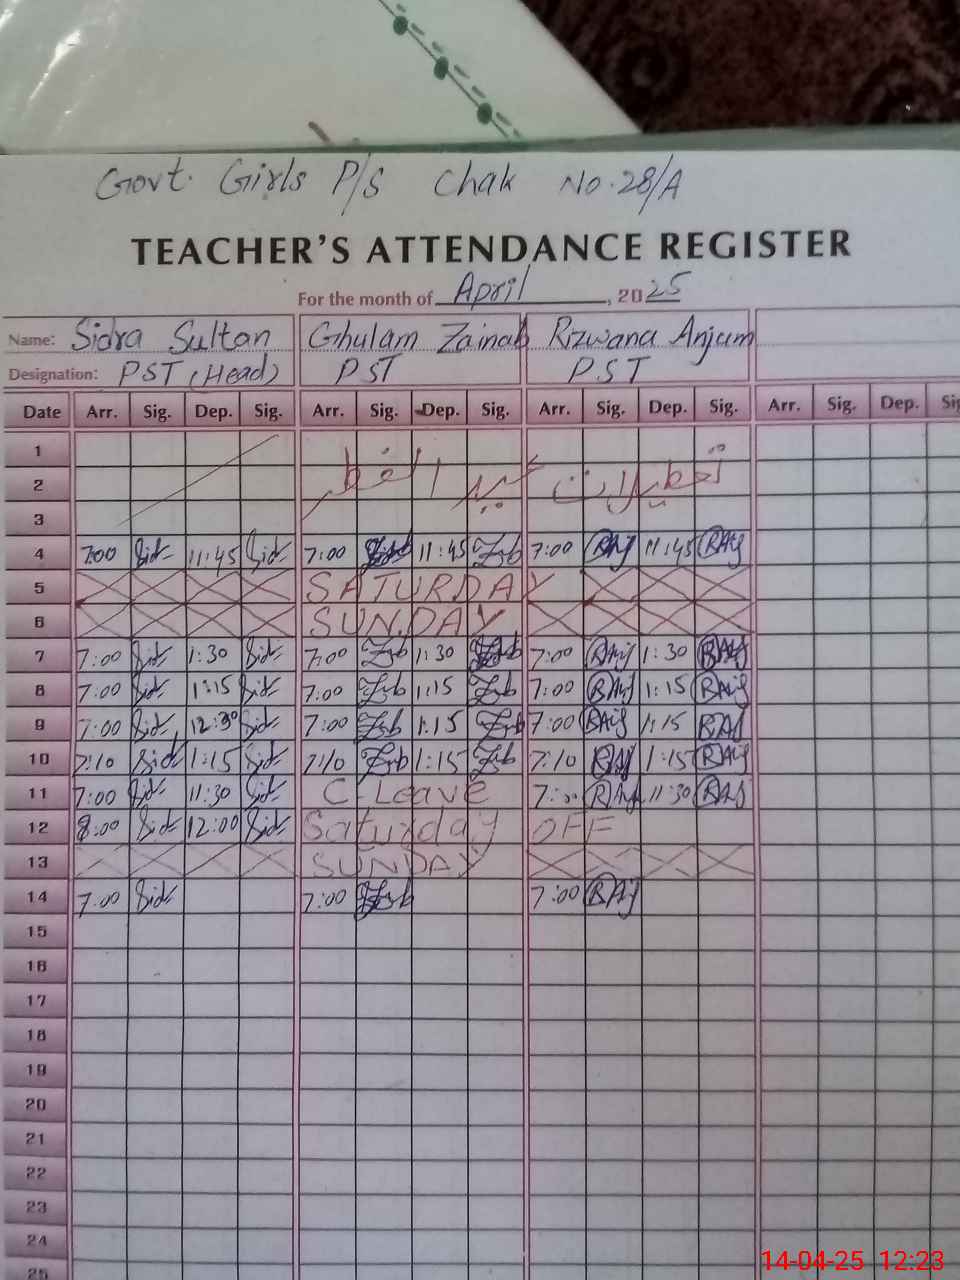 Govt. Girls P/S Chak No. 28/A
TEACHER'S ATTENDANCE REGISTER
For the month of April, 2025
Name: Sidra Sultan Ghulam Zainab Rizwana Anjum
Designation: PST (Head) PST PST
Date Arr. Sig. Dep. Sig. Arr. Sig. Dep. Sig. Arr. Sig. Dep. Sig. Arr. Sig. Dep. Sig
1
2 تعطیلات عید الفطر
3
4 7:00 Sid 11:45 Sid 7:00 11:45 Zub 7:00 RAij 11:45 RAij
5 SATURDAY
6 SUNDAY
7 7:00 Sid 1:30 Sid 7:00 Zub 1:30 Zub 7:00 RAij 1:30 RAij
8 7:00 Sid 1:15 Sid 7:00 Zub 1:15 Zub 7:00 RAij 1:15 RAij
9 7:00 Sid 12:30 Sid 7:00 Zub 1:15 Zub 7:00 RAij 1:15 RAij
10 7:10 Sid 1:15 Sid 7:10 Zub 1:15 Zub 7:10 RAij 1:15 RAij
11 7:00 Sid 11:30 Sid C-Leave 7:00 RAij 11:30 RAij
12 8:00 Sid 12:00 Sid Saturday OFF
13 SUNDAY
14 7:00 Sid 7:00 Zub 7:00 RAij
15
16
17
18
19
20
21
22
23
24
25
14-04-25 12:23